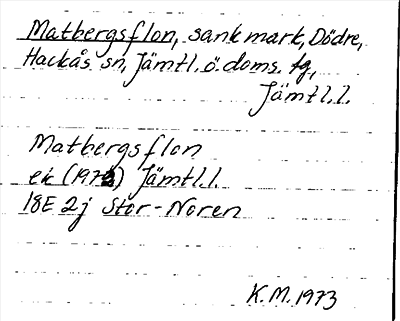 Matbergsflon, sank mark, Dödre,
Hackås sn, Jämtl. ö. doms. tg,
Jämtl.l.
Matbergsflon
ek (1972) Jämtl.l.
18E 2j Stor-Noren
K.M. 1973